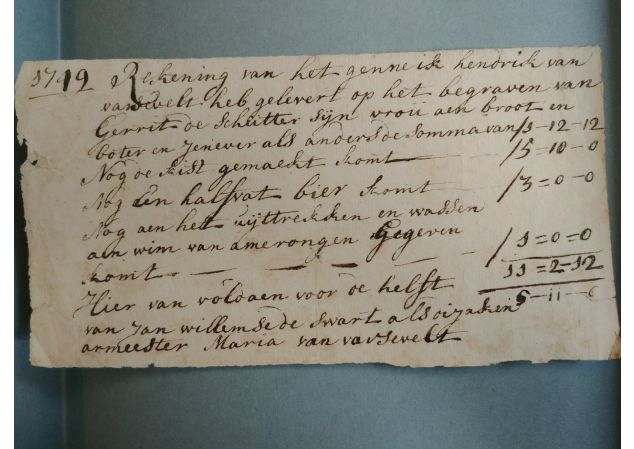 1749 Rekening van het genne ik hendrick van
varsevelt heb gelevert op het begraven van
Gerrit de Schutter sijn vrou aen broot en
boter en Jenever als anders de somma van /1-12-12
Nog de kist gemaekt komt /5-10-0
Nog Een halfvat bier komt /3=0-0
Nog aen het uijttrekken en wassen
aen wim van amerongen Gegeven
komt /1=0=0
11=2-12
Hier van voldaen voor de helft 5-11-6
van Jan willemse de swart als
armeester Maria van varsevelt